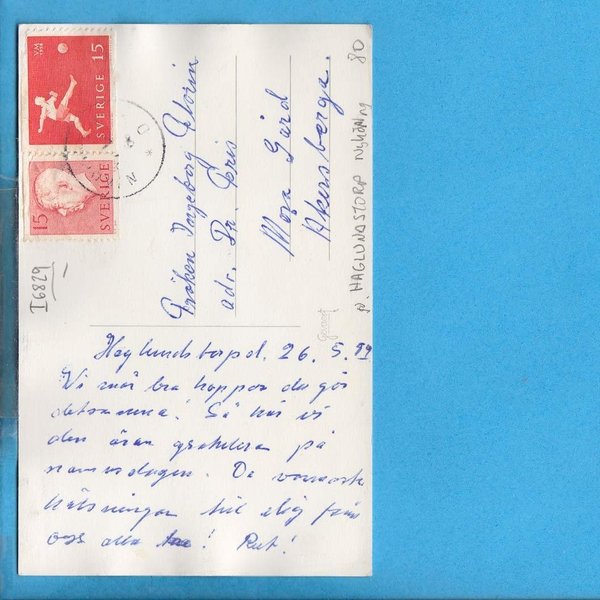 VM 1958
SVERIGE 15
15 SVERIGE
I6829
Fröken Ingeborg Florin
adr. Dr. Peris
Gård
Åkersberga.
80
p. HAGLUNDSTORP
Haglundstorp d. 26. 5. 59
Vi mår bra hoppas du gör
detsamma! Så har vi
den äran gratulera på
namnsdagen. De varmaste
hälsningar till dig från
oss alla! Rut!